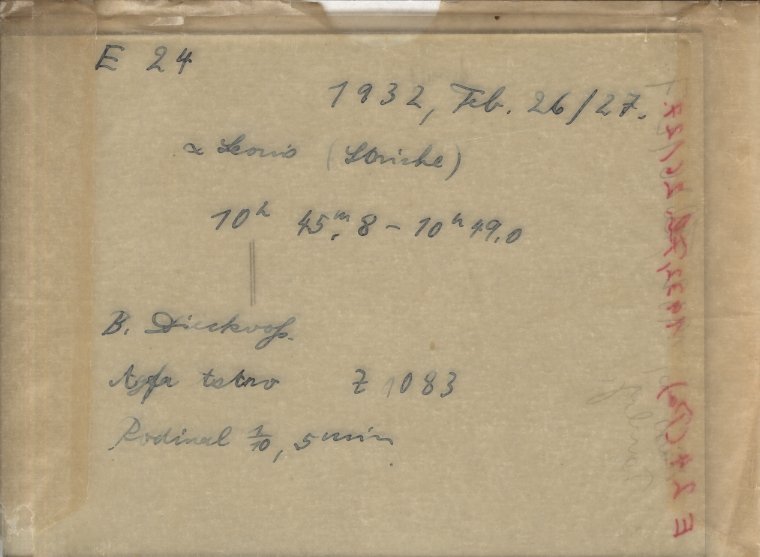 E 24
1932, Feb. 26/27.
α Leonis (Striche)
10ʰ 45ᵐ,8 – 10ʰ 49,0
B. Dieckvoß.
Agfa Astro Z 1083
Rodinal 1/10, 5 min.